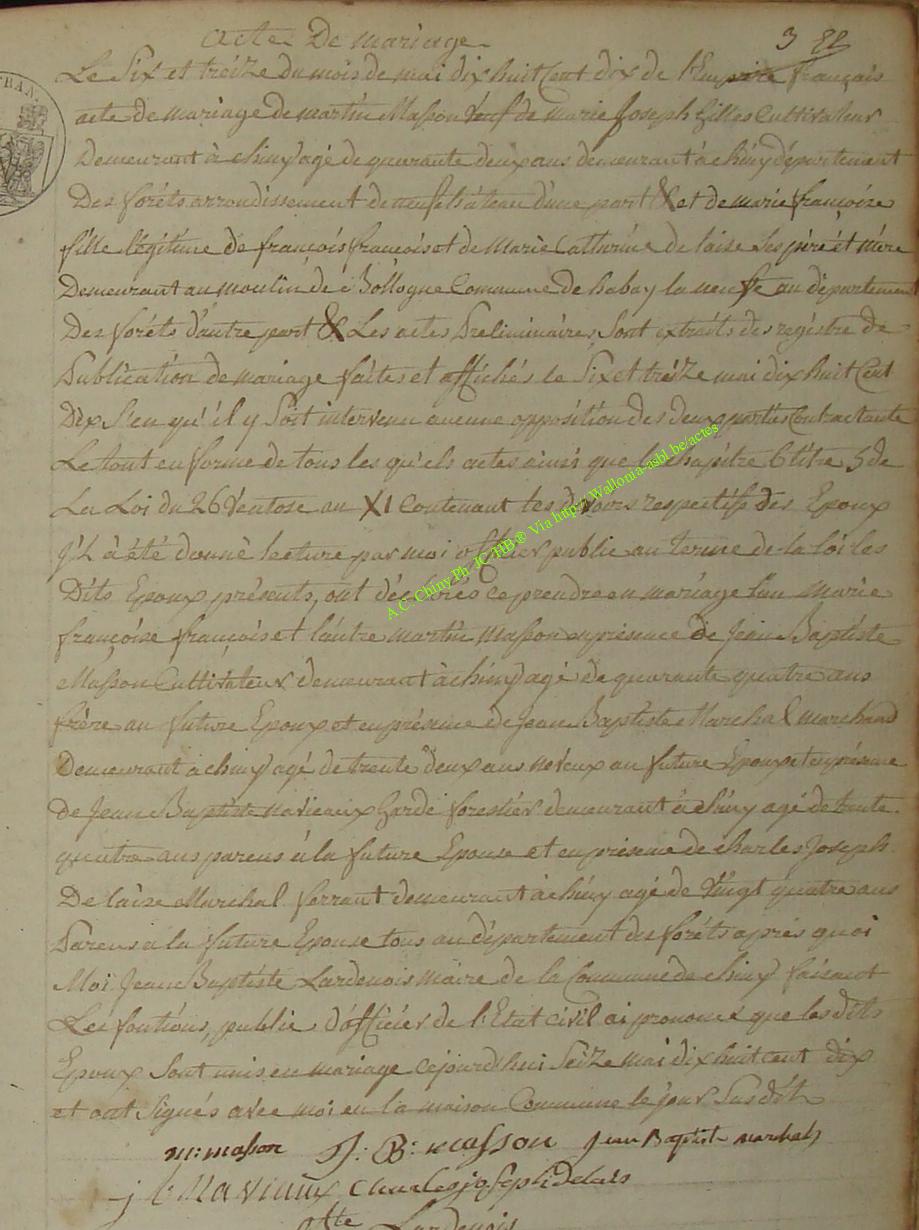 acte De mariage
3
Le Six et treize du mois de mai dix huit Cent dix de l'Empire français
acte de mariage de martin Masson Veuf de marie Joseph Gilles Cultivateur
Demeurant à chiny agé de quarante deux ans demeurant à chiny département
Des forêts arrondissement de neufchâteau d'une part & et de marie françoise
fille légitime de françois françois et de Marie Catherine de laise Ses père et mère
Demeurant au moulin de Bologne Commune de habay la neufve au département
Des forêts d'autre part & Les actes Préliminaires Sont extraits des registre de
Publication de mariage faites et affichés le Six et treize mai dix huit Cent
Dix S'en qu'il y Soit intervenu aucune opposition des deux parties Contractante
Le tout en forme de tous les qu'els actes ainsi que le Chapitre 6 titre 5 de
La Loi du 26 Ventose an XI Contenant les devoirs respectifs des Epoux
q'L à été donné lecture par moi officier public au terme de la loi les
Dits Epoux présents, ont déclarés ce prendre en mariage l'un Marie
françoise françois et l'autre martin Masson en présence de Jean Baptiste
Masson Cultivateur demeurant à chiny agé de quarante quatre ans
frère au future Epoux et en présence de Jean Baptiste Marchal marchand
Demeurant à chiny agé de trente deux ans neveux au future Epoux et en présence
de Jean Baptiste navieaux Garde forestier demeurant à chiny agé de trente
quatre ans parens à la future Epouse et en présence de Charles Joseph
De laise Marchal ferrant demeurant à chiny agé de Vingt quatre ans
Parens a la future Epouse tous au département des forêts après quoi
Moi Jean Baptiste Lardenois maire de la Commune de chiny faisant
Les fontions, public d'officier de l'Etat civil ai prononcé que les dits
Epoux Sont unis en mariage cejourd'hui Seize mai dix huit cent dix
et ont Signés avec moi en la maison Commune le jour Susdit
m: masson J: B: masson Jean Baptiste marchal
j b: Navieaux Charles joseph delais
Lardenois
A.C. Chiny Ph JC HB® Via https Wallonia-asbl be/actes